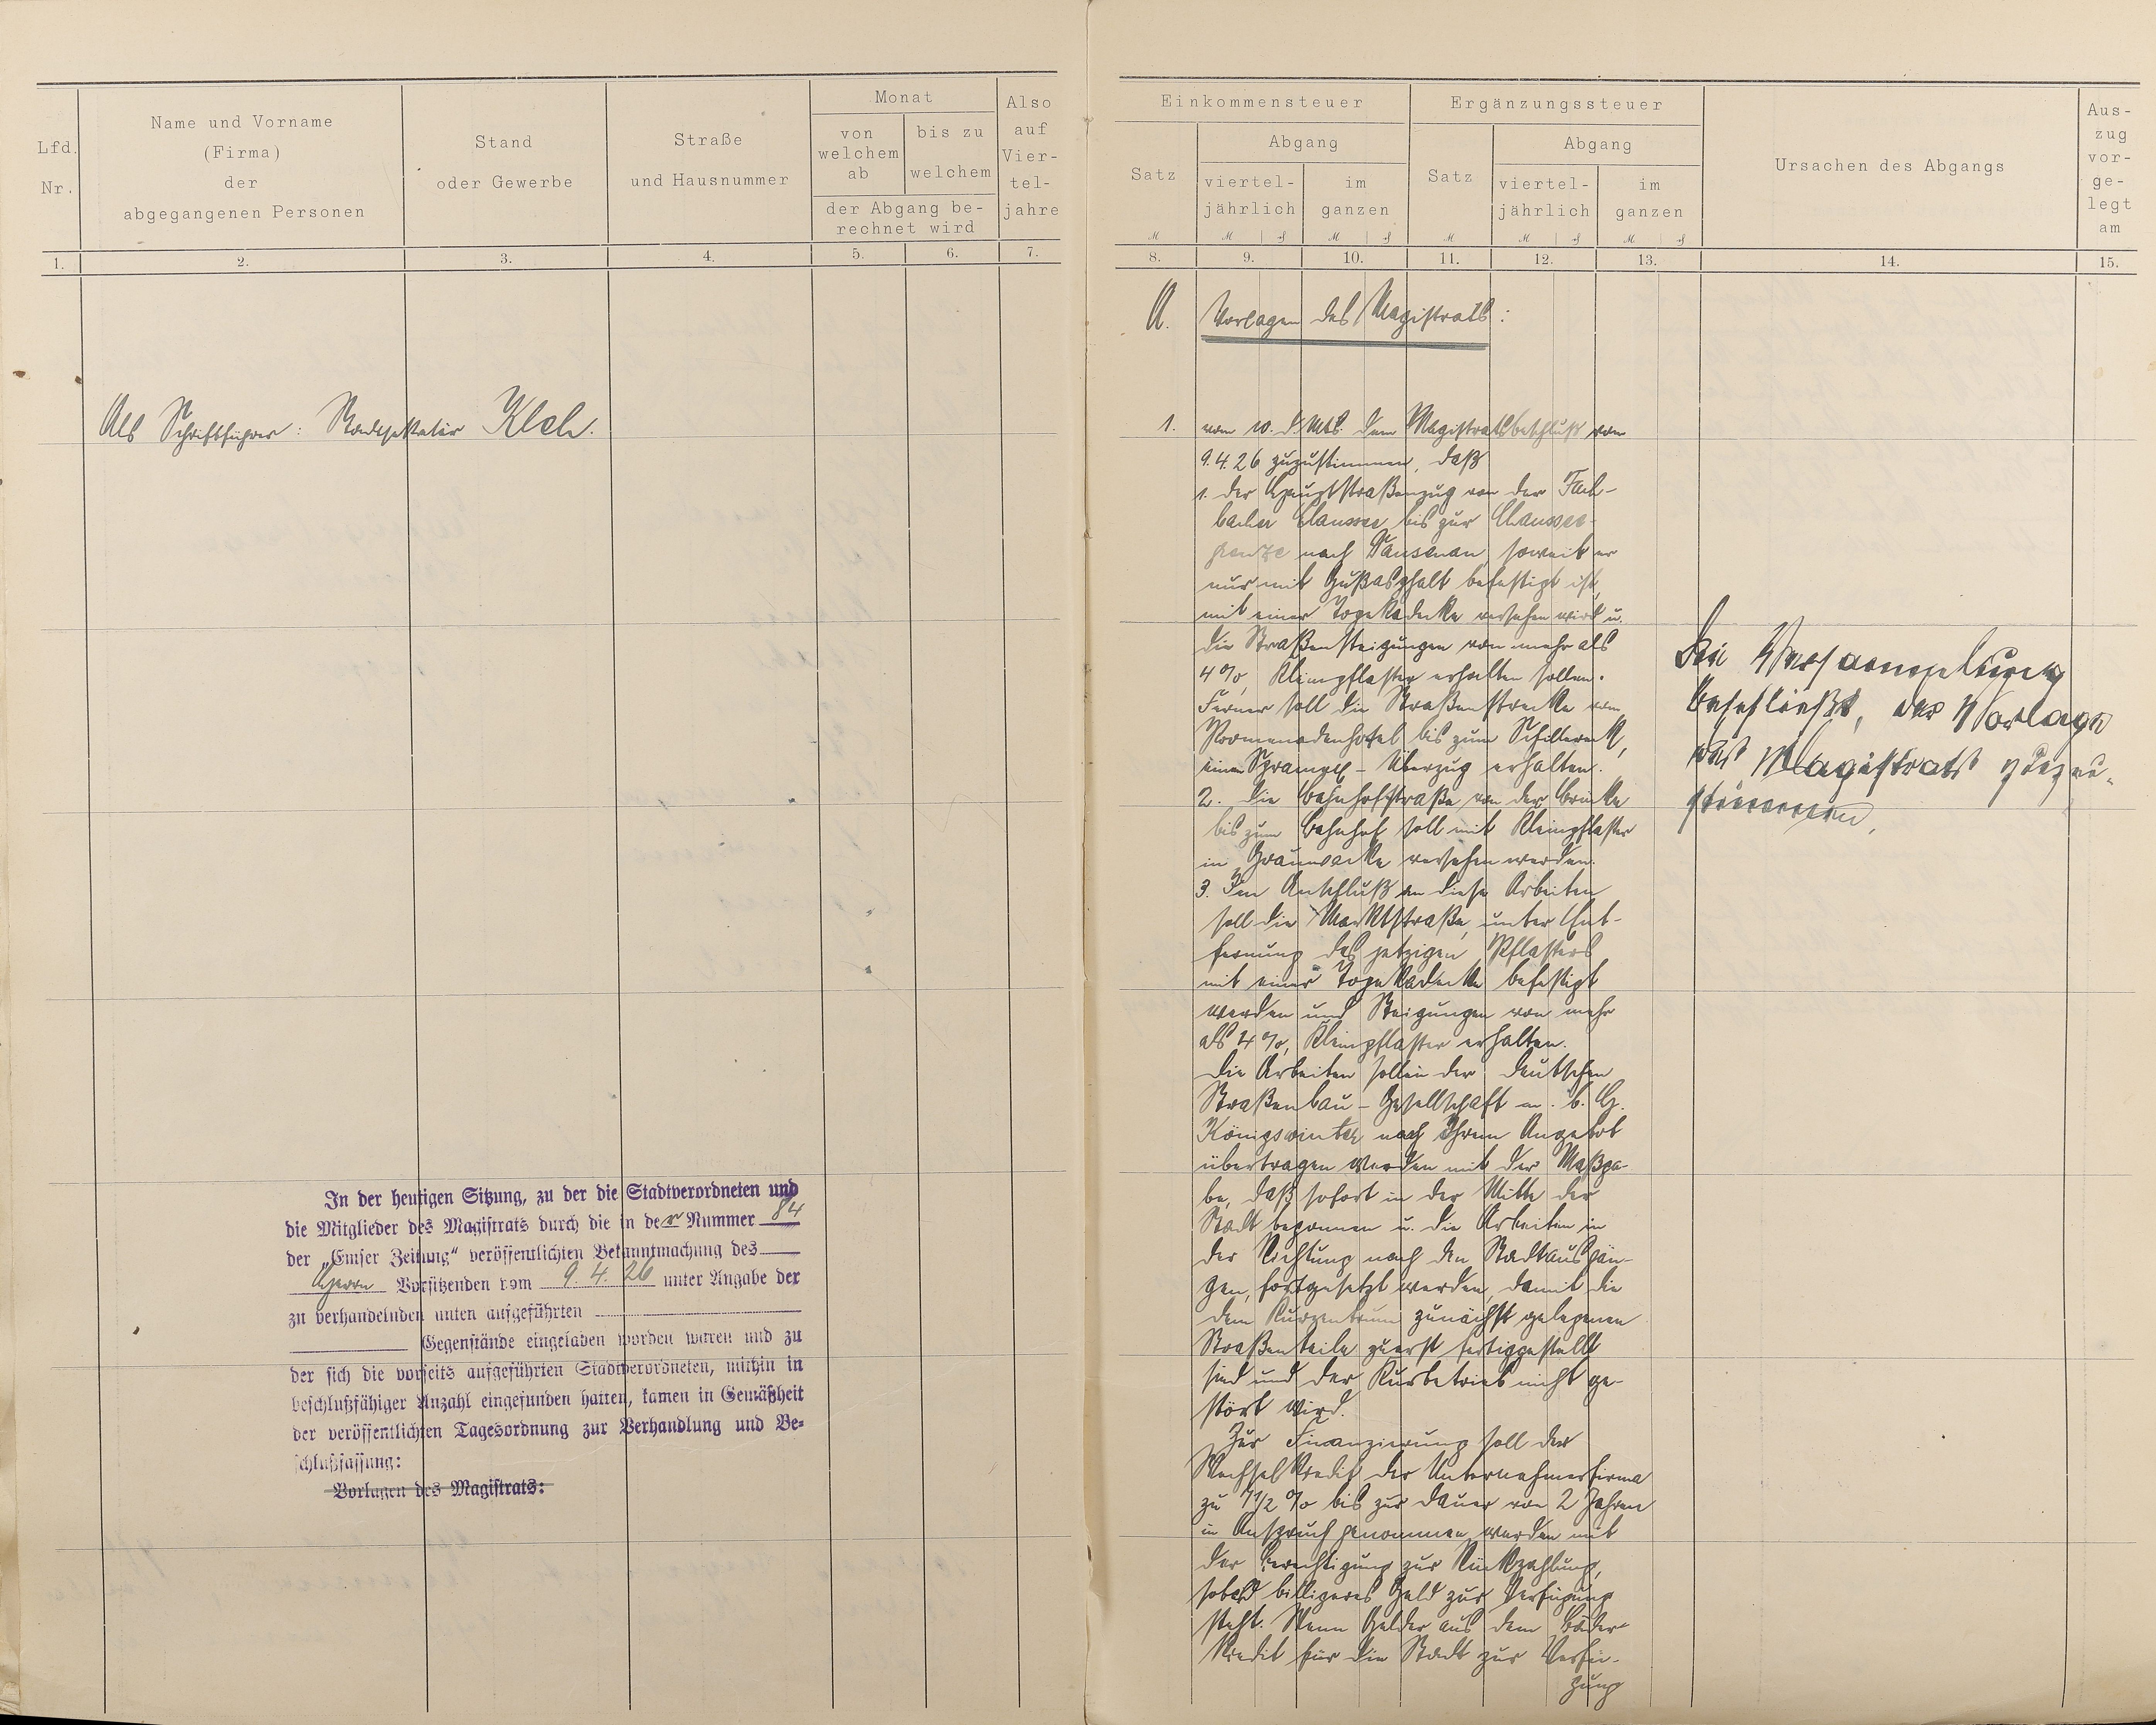 Lfd.
Nr.
Name und Vorname
(Firma)
der
abgegangenen Personen
Stand
oder Gewerbe
Straße
und Hausnummer
Monat
von
welchem
ab
bis zu
welchem
der Abgang be-
rechnet wird
Also
auf
Vier-
tel-
jahre
1.
2.
3.
4.
5.
6.
7.
Als Schriftführer: Stadtsekretär Klch.
In der heutigen Sitzung, zu der die Stadtverordneten und
die Mitglieder des Magistrats durch die in der Nummer 84
der „Emser Zeitung“ veröffentlichten Bekanntmachung des
Herrn Vorsitzenden vom 9. 4. 26 unter Angabe der
zu verhandelnden unten aufgeführten
Gegenstände eingeladen worden waren und zu
der sich die vorseits aufgeführten Stadtverordneten, mithin in
beschlußfähiger Anzahl eingefunden hatten, kamen in Gemäßheit
der veröffentlichten Tagesordnung zur Verhandlung und Be-
schlußfassung:
Vorlagen des Magistrats:
Einkommensteuer
Satz
Abgang
viertel-
jährlich
im
ganzen
Ergänzungssteuer
Satz
Abgang
viertel-
jährlich
im
ganzen
Ursachen des Abgangs
Aus-
zug
vor-
ge-
legt
am
8.
9.
10.
11.
12.
13.
14.
15.
A. Vorlagen des Magistrats:
1. vom 10. d. Mts. dem Magistratsbeschluß vom
9.4.26 zuzustimmen, daß
1. der Hauptstraßenzug von der Fach-
bacher Chaussee bis zur Chaussee-
grenze nach Dausenau, soweit er
nur mit Gußasphalt befestigt ist,
mit einer Topekadecke versehen wird u.
die Straßensteigungen von mehr als
4%, Kleinpflaster erhalten sollen.
Ferner soll die Straßenstrecke vom
Promenadenhotel bis zum Schillereck,
einen Spramex-Überzug erhalten.
2. Die Bahnhofstraße von der Brücke
bis zum Bahnhof soll mit Kleinpflaster
in Grauwacke versehen werden.
3. Im Anschluß an diese Arbeiten
soll die Marktstraße, unter Ent-
fernung des jetzigen Pflasters
mit einer Topekadecke befestigt
werden und Steigungen von mehr
als 4%, Kleinpflaster erhalten.
Die Arbeiten sollen der Deutschen
Straßenbau-Gesellschaft m. b. H.
Königswinter nach Ihrem Angebot
übertragen werden mit der Maßga-
be, daß sofort in der Mitte der
Stadt begonnen u. die Arbeiten in
der Richtung nach den Stadtausgän-
gen, fortgesetzt werden, damit die
dem Kurzentrum zunächst gelegenen
Straßenteile zuerst fertiggestellt
sind und der Kurbetrieb nicht ge-
stört wird.
Zur Finanzierung soll der
Wechselkredit der Unternehmerfirma
zu 7 1/2 % bis zur Dauer von 2 Jahren
in Anspruch genommen werden mit
der Berechtigung zur Rückzahlung,
sobald billigeres Geld zur Verfügung
steht. Wenn Gelder aus dem Bäder-
kredit für die Stadt zur Verfü-
gung
Die Versammlung
beschließt, der Vorlage
des Magistrats zuzu-
stimmen.